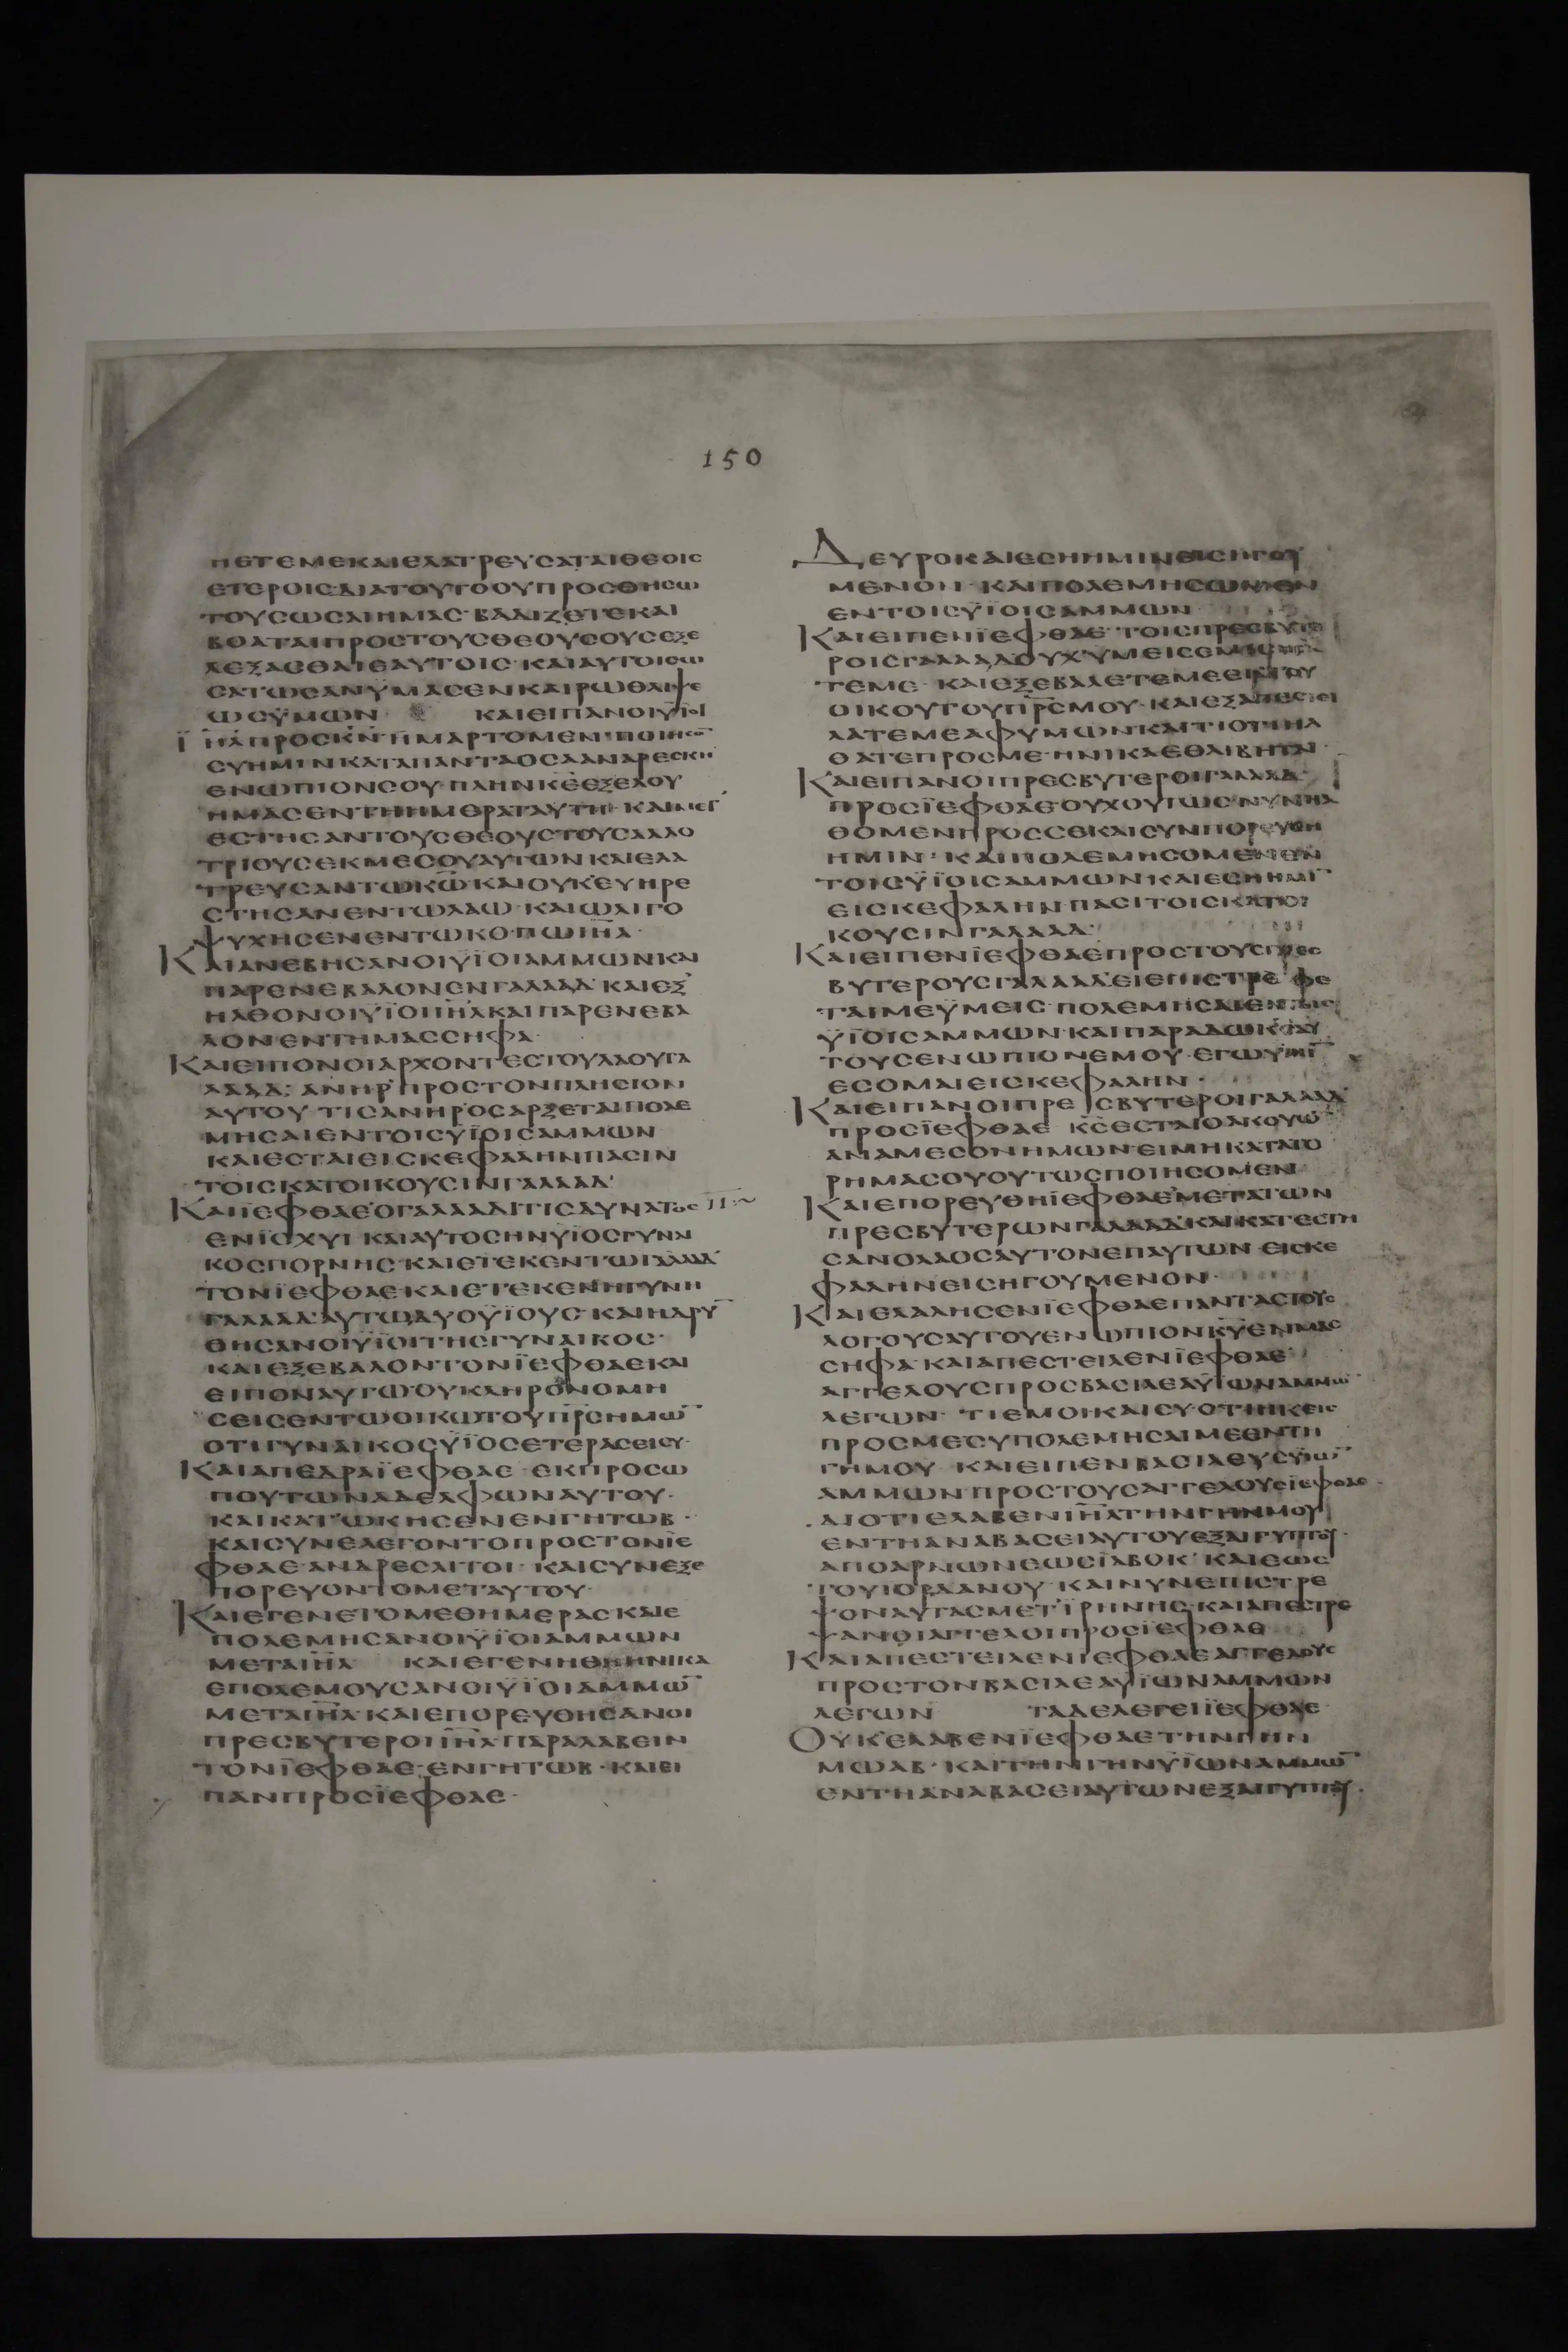 150
ΠΕΤΕΜΕΚΑΙΕΛΑΤΡΕΥCΑΤΑΙΘΕΟΙC
ΕΤΕΡΟΙCΔΙΑΤΟΥΤΟΟΥΠΡΟCΘΗCΩ
ΤΟΥCΩCΑΙΗΜΑC· ΒΑΔΙΖΕΤΕΚΑΙ
ΒΟΑΤΑΙΠΡΟCΤΟΥCΘΕΟΥCΟΥCΕΞΕ
ΛΕΞΑCΘΑΙΕΑΥΤΟΙC· ΚΑΙΑΥΤΟΙCΩ
CΑΤΩCΑΝΫΜΑCΕΝΚΑΙΡΩΘΛΙΨΕ
ΩCΫΜΩΝ ΚΑΙΕΙΠΑΝΟΙΥΪΟΙ
ΠΡΟCΚΝ·ΗΜΑΡΤΟΜΕΝ·
CΥΗΜΙΝΚΑΤΑΠΑΝΤΑΟCΑΑΝΑΡΕCΚΗ
ΕΝΩΠΙΟΝCΟΥ·ΠΛΗΝΚΕΕΞΕΛΟΥ
ΗΜΑCΕΝΤΗΗΜΕΡΑΤΑΥΤΗ·
ΕCΤΗCΑΝΤΟΥCΘΕΟΥCΤΟΥCΑΛΛΟ
ΤΡΙΟΥCΕΚΜΕCΟΥΑΥΤΩΝΚΑΙΕΛΑ
ΤΡΕΥCΑΝΤΩΚΩ̅ΚΑΙΟΥΚΕΥΗΡΕ
CΤΗCΑΝΕΝΤΩΛΑΩ·ΚΑΙΩΛΙΓΟ
ΨΥΧΗCΕΝΕΝΤΩΚΟΠΩΙΗ̅Λ·
ΚΑΙΑΝΕΒΗCΑΝΟΙΫΪΟΙΑΜΜΩΝΚΑΙ
ΠΑΡΕΝΕΒΑΛΟΝΕΝΓΑΛΑΑΔ·ΚΑΙΕΞ
ΗΛΘΟΝΟΙΫΪΟΙΙΗ̅ΛΚΑΙΠΑΡΕΝΕΒΑ
ΛΟΝΕΝΤΗΜΑCCΗΦΑ·
ΚΑΙΕΙΠΟΝΟΙΑΡΧΟΝΤΕCΤΟΥΛΑΟΥΓΑ
ΛΑΑΔ· ΑΝΗΡΠΡΟCΤΟΝΠΛΗCΙΟΝ
ΑΥΤΟΥ ΤΙCΑΝΗΡΟCΑΡΞΕΤΑΙΠΟΛΕ
ΜΗCΑΙΕΝΤΟΙCΫΪΟΙCΑΜΜΩΝ
ΚΑΙΕCΤΑΙΕΙCΚΕΦΑΛΗΝΠΑCΙΝ
ΤΟΙCΚΑΤΟΙΚΟΥCΙΝΓΑΛΑΑΔ·
ΚΑΙΪΕΦΘΑΕΟΓΑΛΑΑΔΙΤΙCΔΥΝΑΤΟC
ΕΝΪCΧΥΙ ΚΑΙΑΥΤΟCΗΝΫΪΟCΓΥΝΑΙ
ΚΟCΠΟΡΝΗC·ΚΑΙΕΤΕΚΕΝΤΩΓΑΛΑΑΔ
ΤΟΝΪΕΦΘΑΕ·ΚΑΙΕΤΕΚΕΝΗΓΥΝΗ
ΓΑΛΑΑΔ·ΑΥΤΩΔΥΟΫΪΟΥC·ΚΑΙΗΔΡΥ̅
ΘΗCΑΝΟΙΫΪΟΙΤΗCΓΥΝΑΙΚΟC·
ΚΑΙΕΞΕΒΑΛΟΝΤΟΝΪΕΦΘΑΕΚΑΙ
ΕΙΠΟΝΑΥΤΩ·ΟΥΚΛΗΡΟΝΟΜΗ
CΕΙCΕΝΤΩΟΙΚΩΤΟΥΠΡ̅CΗΜΩ̅
ΟΤΙΓΥΝΑΙΚΟCΫΪΟCΕΤΕΡΑCΕΙCΥ·
ΚΑΙΑΠΕΔΡΑΪΕΦΘΑΕ ΕΚΠΡΟCΩ
ΠΟΥΤΩΝΑΔΕΛΦΩΝΑΥΤΟΥ·
ΚΑΙΚΑΤΩΚΗCΕΝΕΝΓΗΤΩΒ·
ΚΑΙCΥΝΕΛΕΓΟΝΤΟΠΡΟCΤΟΝΪΕ
ΦΘΑΕ·ΑΝΔΡΕCΛΙΤΟΙ·ΚΑΙCΥΝΕΞΕ
ΠΟΡΕΥΟΝΤΟΜΕΤΑΥΤΟΥ·
ΚΑΙΕΓΕΝΕΤΟΜΕΘΗΜΕΡΑCΚΑΙΕ
ΠΟΛΕΜΗCΑΝΟΙΫΪΟΙΑΜΜΩΝ
ΜΕΤΑΙΗ̅Λ ΚΑΙΕΓΕΝΗΘΗΗΝΙΚΑ
ΕΠΟΛΕΜΟΥCΑΝΟΙΫΪΟΙΑΜΜΩ̅
ΜΕΤΑΙΗ̅Λ·ΚΑΙΕΠΟΡΕΥΘΗCΑΝΟΙ
ΠΡΕCΒΥΤΕΡΟΙΙΗ̅ΛΠΑΡΑΛΑΒΕΙΝ
ΤΟΝΪΕΦΘΑΕ·ΕΝΓΗΤΩΒ·ΚΑΙΕΙ
ΠΑΝΠΡΟCΪΕΦΘΑΕ·
ΔΕΥΡΟΚΑΙΕCΗΗΜΙΝΕΙCΗΓΟΥ
ΜΕΝΟΝ·ΚΑΙΠΟΛΕΜΗCΩΜΕΝ
ΕΝΤΟΙCΫΪΟΙCΑΜΜΩΝ
ΚΑΙΕΙΠΕΝΪΕΦΘΑΕ·ΤΟΙCΠΡΕCΒΥΤΕ
ΡΟΙCΓΑΛΑΑΔΟΥΧΫΜΕΙC
ΤΕΜΕ· ΚΑΙΕΞΕΒΑΛΕΤΕΜΕΕΚΤΟΥ
ΟΙΚΟΥΤΟΥΠΡ̅CΜΟΥ·ΚΑΙΕΞΑΠΕCΤΕΙ
ΛΑΤΕΜΕΑΦΥΜΩΝ·ΚΑΙΤΙΟΤΙΗΛ
ΘΑΤΕΠΡΟCΜΕ·ΗΝΙΚΑΕΘΛΙΒΗΤΑΙ·
ΚΑΙΕΙΠΑΝΟΙΠΡΕCΒΥΤΕΡΟΙΓΑΛΑΑΔ·
ΠΡΟCΪΕΦΘΑΕ·ΟΥΧΟΥΤΩC·ΝΥΝΗΛ
ΘΟΜΕΝΠΡΟCCΕΚΑΙCΥΝΠΟΡΕΥCΗ
ΗΜΙΝ·ΚΑΙΠΟΛΕΜΗCΟΜΕΝΕΝ
ΤΟΙCΫΪΟΙCΑΜΜΩΝΚΑΙΕCΗΗΜΙ̅
ΕΙCΚΕΦΑΛΗΝΠΑCΙΤΟΙCΚΑΤΟΙ
ΚΟΥCΙΝΓΑΛΑΑΔ·
ΚΑΙΕΙΠΕΝΪΕΦΘΑΕΠΡΟCΤΟΥCΠΡΕC
ΒΥΤΕΡΟΥCΓΑΛΑΑΔ·ΕΙΕΠΙCΤΡΕΦΕ
ΤΑΙΜΕΫΜΕΙC·ΠΟΛΕΜΗCΑΙΕΝΤΟΙC
ΫΪΟΙCΑΜΜΩΝ·ΚΑΙΠΑΡΑΔΩΚCΑΥ
ΤΟΥCΕΝΩΠΙΟΝΕΜΟΥ·ΕΓΩΥΜΙ̅
ΕCΟΜΑΙΕΙCΚΕΦΑΛΗΝ·
ΚΑΙΕΙΠΑΝΟΙΠΡΕCΒΥΤΕΡΟΙΓΑΛΑΑΔ
ΠΡΟCΪΕΦΘΑΕ ΚC̅ΕCΤΑΙΟΑΚΟΥΩ̅
ΑΝΑΜΕCΟΝΗΜΩΝ·ΕΙΜΗΚΑΤΑΤΟ
ΡΗΜΑCΟΥΟΥΤΩCΠΟΙΗCΟΜΕΝ
ΚΑΙΕΠΟΡΕΥΘΗΪΕΦΘΑΕΜΕΤΑΤΩΝ
ΠΡΕCΒΥΤΕΡΩΝΓΑΛΑΑΔ·ΚΑΙΚΑΤΕCΤΗ
CΑΝΟΛΑΟCΑΥΤΟΝΕΠΑΥΤΩΝ·ΕΙCΚΕ
ΦΑΛΗΝΕΙCΗΓΟΥΜΕΝΟΝ·
ΚΑΙΕΛΑΛΗCΕΝΪΕΦΘΑΕΠΑΝΤΑCΤΟΥC
ΛΟΓΟΥCΑΥΤΟΥΕΝΩΠΙΟΝΚΥ̅ΕΝΜΑC
CΗΦΑ·ΚΑΙΑΠΕCΤΕΙΛΕΝΪΕΦΘΑΕ
ΑΓΓΕΛΟΥCΠΡΟCΒΑCΙΛΕΑΫΪΩΝΑΜΜΩ̅
ΛΕΓΩΝ· ΤΙΕΜΟΙΚΑΙCΥ·ΟΤΙΗΚΕΙC
ΠΡΟCΜΕCΥΠΟΛΕΜΗCΑΙΜΕΕΝΤΗ
ΓΗΜΟΥ ΚΑΙΕΙΠΕΝΒΑCΙΛΕΥCΫΪΩ̅
ΑΜΜΩΝ·ΠΡΟCΤΟΥCΑΓΓΕΛΟΥCΪΕΦΘΑΕ·
ΔΙΟΤΙΕΛΑΒΕΝΙΗ̅ΛΤΗΝΓΗΝΜΟΥ
ΕΝΤΗΑΝΑΒΑCΕΙΑΥΤΟΥΕΞΑΙΓΥΠΤΟΥ·
ΑΠΟΑΡΝΩΝΕΩCΪΑΒΟΚ·ΚΑΙΕΩC
ΤΟΥΙΟΡΔΑΝΟΥ·ΚΑΙΝΥΝΕΠΙCΤΡΕ
ΨΟΝΑΥΤΑCΜΕΤΪΡΗΝΗC·ΚΑΙΑΠΕCΤΡΕ
ΨΑΝΟΙΑΓΓΕΛΟΙΠΡΟCΪΕΦΘΑΕ
ΚΑΙΑΠΕCΤΕΙΛΕΝΪΕΦΘΑΕΑΓΓΕΛΟΥC
ΠΡΟCΤΟΝΒΑCΙΛΕΑΥΪΩΝΑΜΜΩΝ
ΛΕΓΩΝ ΤΑΔΕΛΕΓΕΙΪΕΦΘΑΕ
ΟΥΚΕΛΑΒΕΝΪΕΦΘΑΕΤΗΝΓΗΝ
ΜΩΑΒ·ΚΑΙΤΗΝΓΗΝΥΪΩΝΑΜΜΩ̅
ΕΝΤΗΑΝΑΒΑCΕΙΑΥΤΩΝΕΞΑΙΓΥΠΤΟΥ·